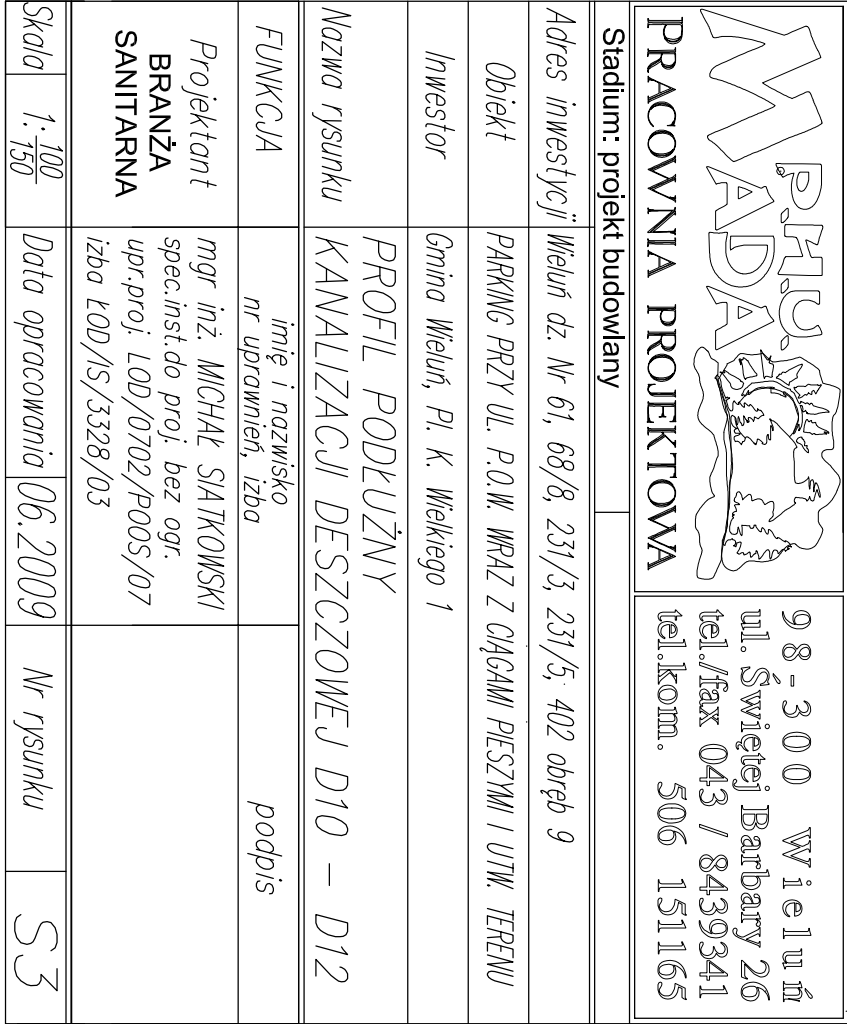 P.H.U.
MADA
PRACOWNIA PROJEKTOWA
98-300 Wieluń
ul. Świętej Barbary 26
tel./fax 043 / 8439341
tel.kom. 506 151165
Stadium: projekt budowlany
Adres inwestycji Wieluń dz. Nr 61, 68/8, 231/3, 231/5, 402 obręb 9
Obiekt PARKING PRZY UL. P.O.W. WRAZ Z CIĄGAMI PIESZYMI I UTW. TERENU
Inwestor Gmina Wieluń, Pl. K. Wielkiego 1
Nazwa rysunku
PROFIL PODŁUŻNY
KANALIZACJI DESZCZOWEJ D10 – D12
FUNKCJA
imię i nazwisko
nr uprawnień, izba
podpis
Projektant
BRANŻA
SANITARNA
mgr inż. MICHAŁ SIATKOWSKI
spec.inst.do proj. bez ogr.
upr.proj. LOD/0702/POOS/07
izba ŁOD/IS/3328/03
Skala 1: 100/150 Data opracowania 06.2009 Nr rysunku S3